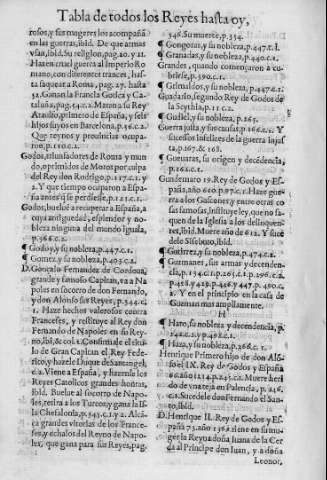 Tabla de todos los Reyes hasta oy,
rosos, y sus mugeres los acompañã
en las guerras, ibid. De que armas
vsan, ibid. Su religion, pag. 20. y 21.
Hazen cruel guerra al Imperio Ro
mano, con diferentes trances, has-
ta saquear a Roma, pag. 27. hasta
32. Ganan la Francia Gotica y Ca-
taluña, pag. 540.c.2. Matan a su Rey
Ataulfo, primero de España, y seis
hijos suyos en Barcelona, p. 16.c.2.
Que reynos y prouincias ocupa-
ron, p. 110.c.1.
Godos, assoladores de Roma y mun
do, oprimidos de Moros por culpa
del Rey don Rodrigo, p. 117.c.1. y
2. Y que tiempo ocuparon a Espa
ña antes q̃ se perdiesse, p. 121.c.1.
Godos, buelue a recuperar a España, a
cuya antiguedad, esplendor y no-
bleza ninguna del mundo iguala,
p. 366.c.2.
¶ Godoy, y su nobleza, p. 447.c.1.
¶ Gomez, y su nobleza, p. 403.c.1.
D. Gonçalo Fernandez de Cordoua,
grande y famoso Capitan, va a Na
poles en socorro de don Fernando,
y don Alonso sus Reyes, p. 544.c.
1. Haze hechos valerosos contra
Franceses, y restituye al Rey don
Fernando de Napoles en su Rey-
no, ibi, & col. 2. Confirmale el titu-
lo de Gran Capitan el Rey Fede-
rico, y hazele Duque de Santangel,
c.2. Viene a España, y hazenle los
Reyes Catolicos grandes honras,
ibid. Buelue al socorro de Napo-
les, retira a los Turcos, y gana la Is
la Chefalonia, p. 545.c.1. y 2. Alcã-
ça grandes vitorias de los France-
ses, y echalos del Reyno de Napo-
les, que gana para sus Reyes, pag.
546. Su muerte, p. 554.
¶ Gongoras, y su nobleza, p. 447.c.1.
¶ Granadas, y su nobleza, p. 440.c.1.
Grandes, quando començaron a cu-
brirse, p. 390.c.1.
¶ Grimaldos, y su nobleza, p. 447.c.1.
Guadaso, segundo Rey de Godos de
la Scythia, p. 11 c.2.
¶ Gudiel, y su nobleza, p. 265.
Guerra justa, y sus causas p. 163.c.1. Y
sucessos infelices de la guerra injus
ta, p. 167. & 168.
¶ Gueuaras, su origen y decẽdencia,
p. 265.c.1.
Gundemaro 19. Rey de Godos y Es-
paña, año 600. p. 97.c.1. Haze guer
ra a los Gascones, y entre otras co
sas famosas, instituye ley, que no sa
quen de la Iglesia a los delinquen-
tes, ibid. Muere año de 612. Y suce
dele Sisebuto, ibid.
¶ Gutierrez, y su nobleza, p. 474.c.1.
¶ Guzmanes, sus armas y decenden-
cia, p. 154.c.1.p.265.c.1.p.296.c.2.
p. 418. y 419. p. 446. y 447. p. 480.c.
2. Y en el principio en la casa de
Guzman mas ampliamente.
H
¶ Haro, su nobleza y decendencia, p.
342.c.2. y p. 498.c.1.
¶ Haza, y su nobleza, p. 266.c.1.
Henrique Primero hijo de don Alõ-
so el IX. Rey de Godos y España
66. año 1214. p. 245.c.2. Muere heri
do de vna teja en Palencia, p. 246.
c.1. Sucedele don Fernando el San-
to, ibid.
D. Henrique II. Rey de Godos y Es-
paña 73. año 1369. tiene en su mu-
ger la Reyna doña Iuana de la Cer
da al Principe don Iuan, y a doña
Leonor,